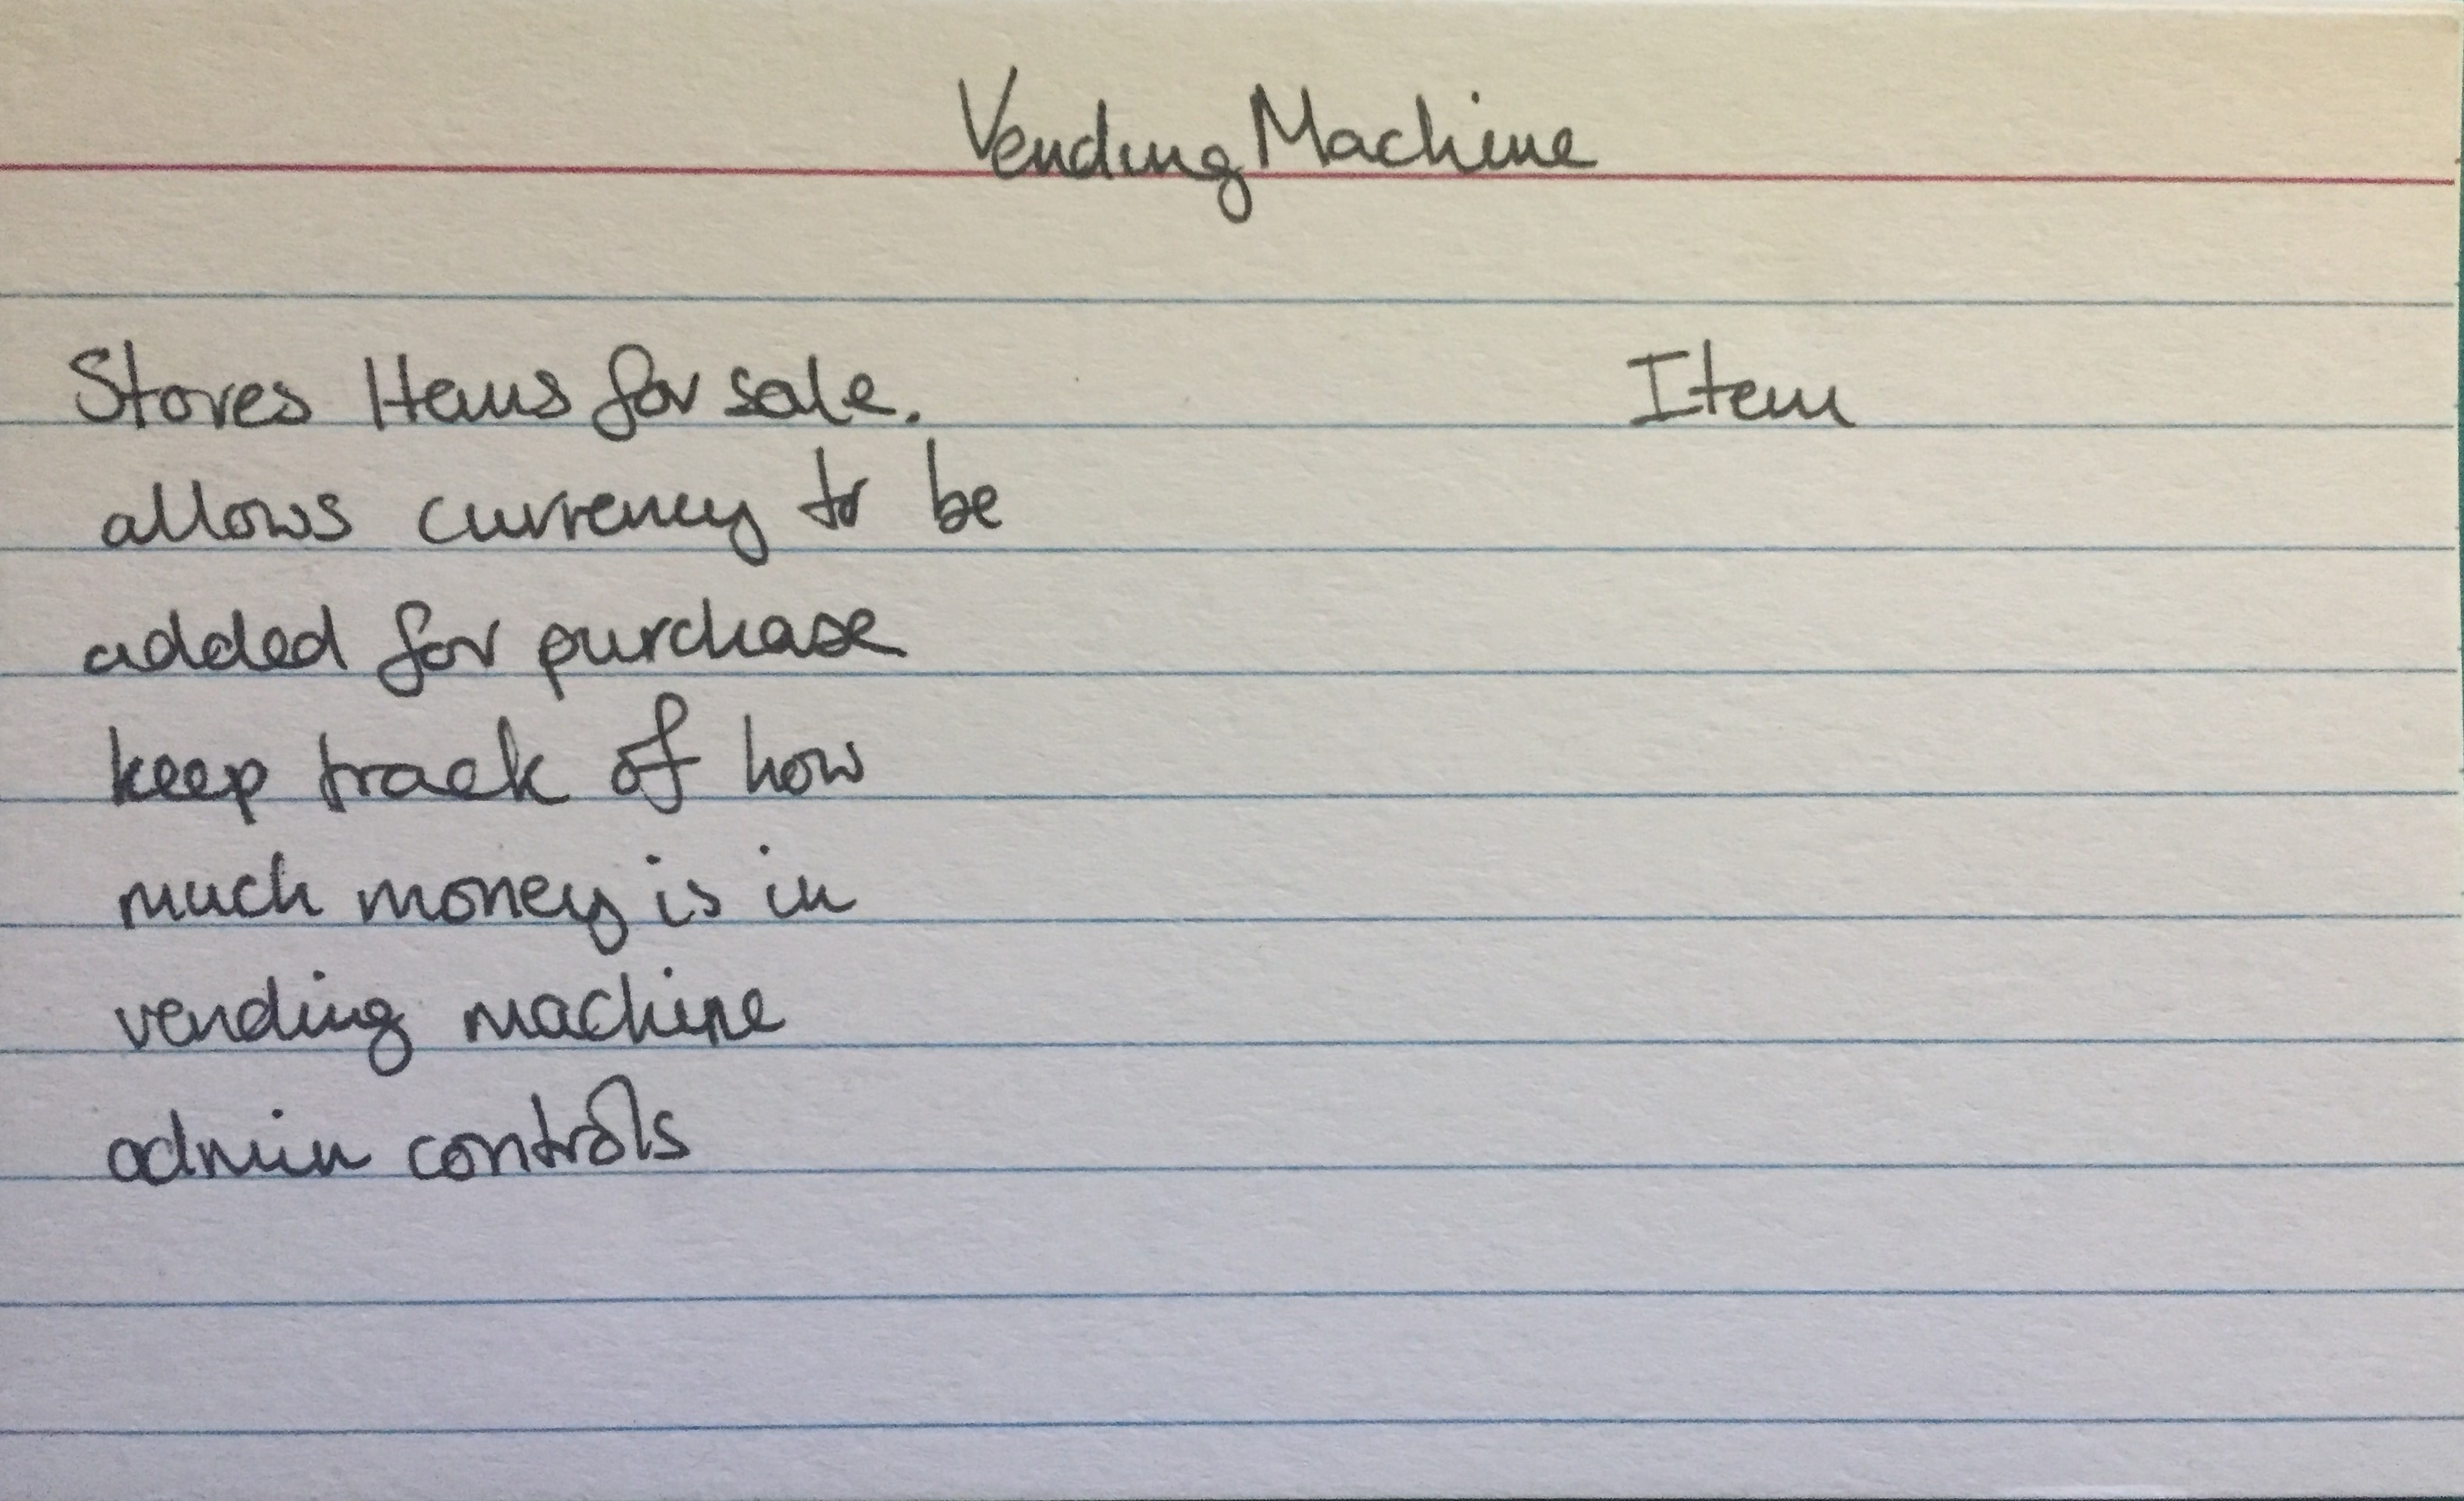 VendingMachine
Stores Items for sale. Item
allows currency to be
added for purchase
keep track of how
much money is in
vending machine
admin controls